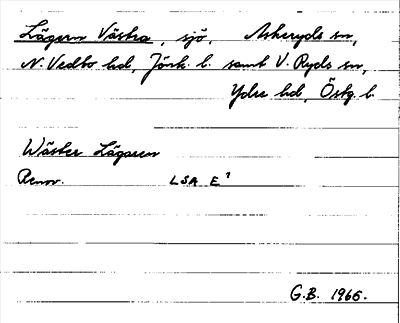 Lägern Västra, sjö, Askeryds sn,
N. Vedbo hd, Jönk. l. samt V. Ryds sn,
Ydre hd, Östg. l.
Wäster Lägaren
Renov. LSA E¹
G.B. 1965.